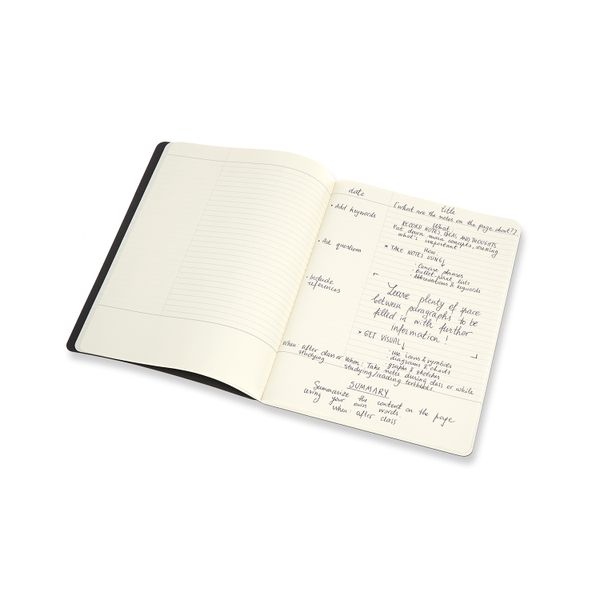 date
title
[What are the notes on the page about?]
• Add keywords
What
RECORD NOTES, IDEAS AND THOUGHTS
Put down main concepts, marking
what's important
How
• Ask questions
* TAKE NOTES USING
· Concise phrases
· Bullet-point lists
· Abbreviations & keywords
• Include
references
Leave plenty of space
between paragraphs to be
filled in with further
information!
* GET VISUAL
Use icons & symbols
diagrams & charts
graphs & sketches
When: after class or
studying
When: Take notes during class or while
studying/reading textbooks
SUMMARY
Summarize the content on the page
using your own words
When: after class